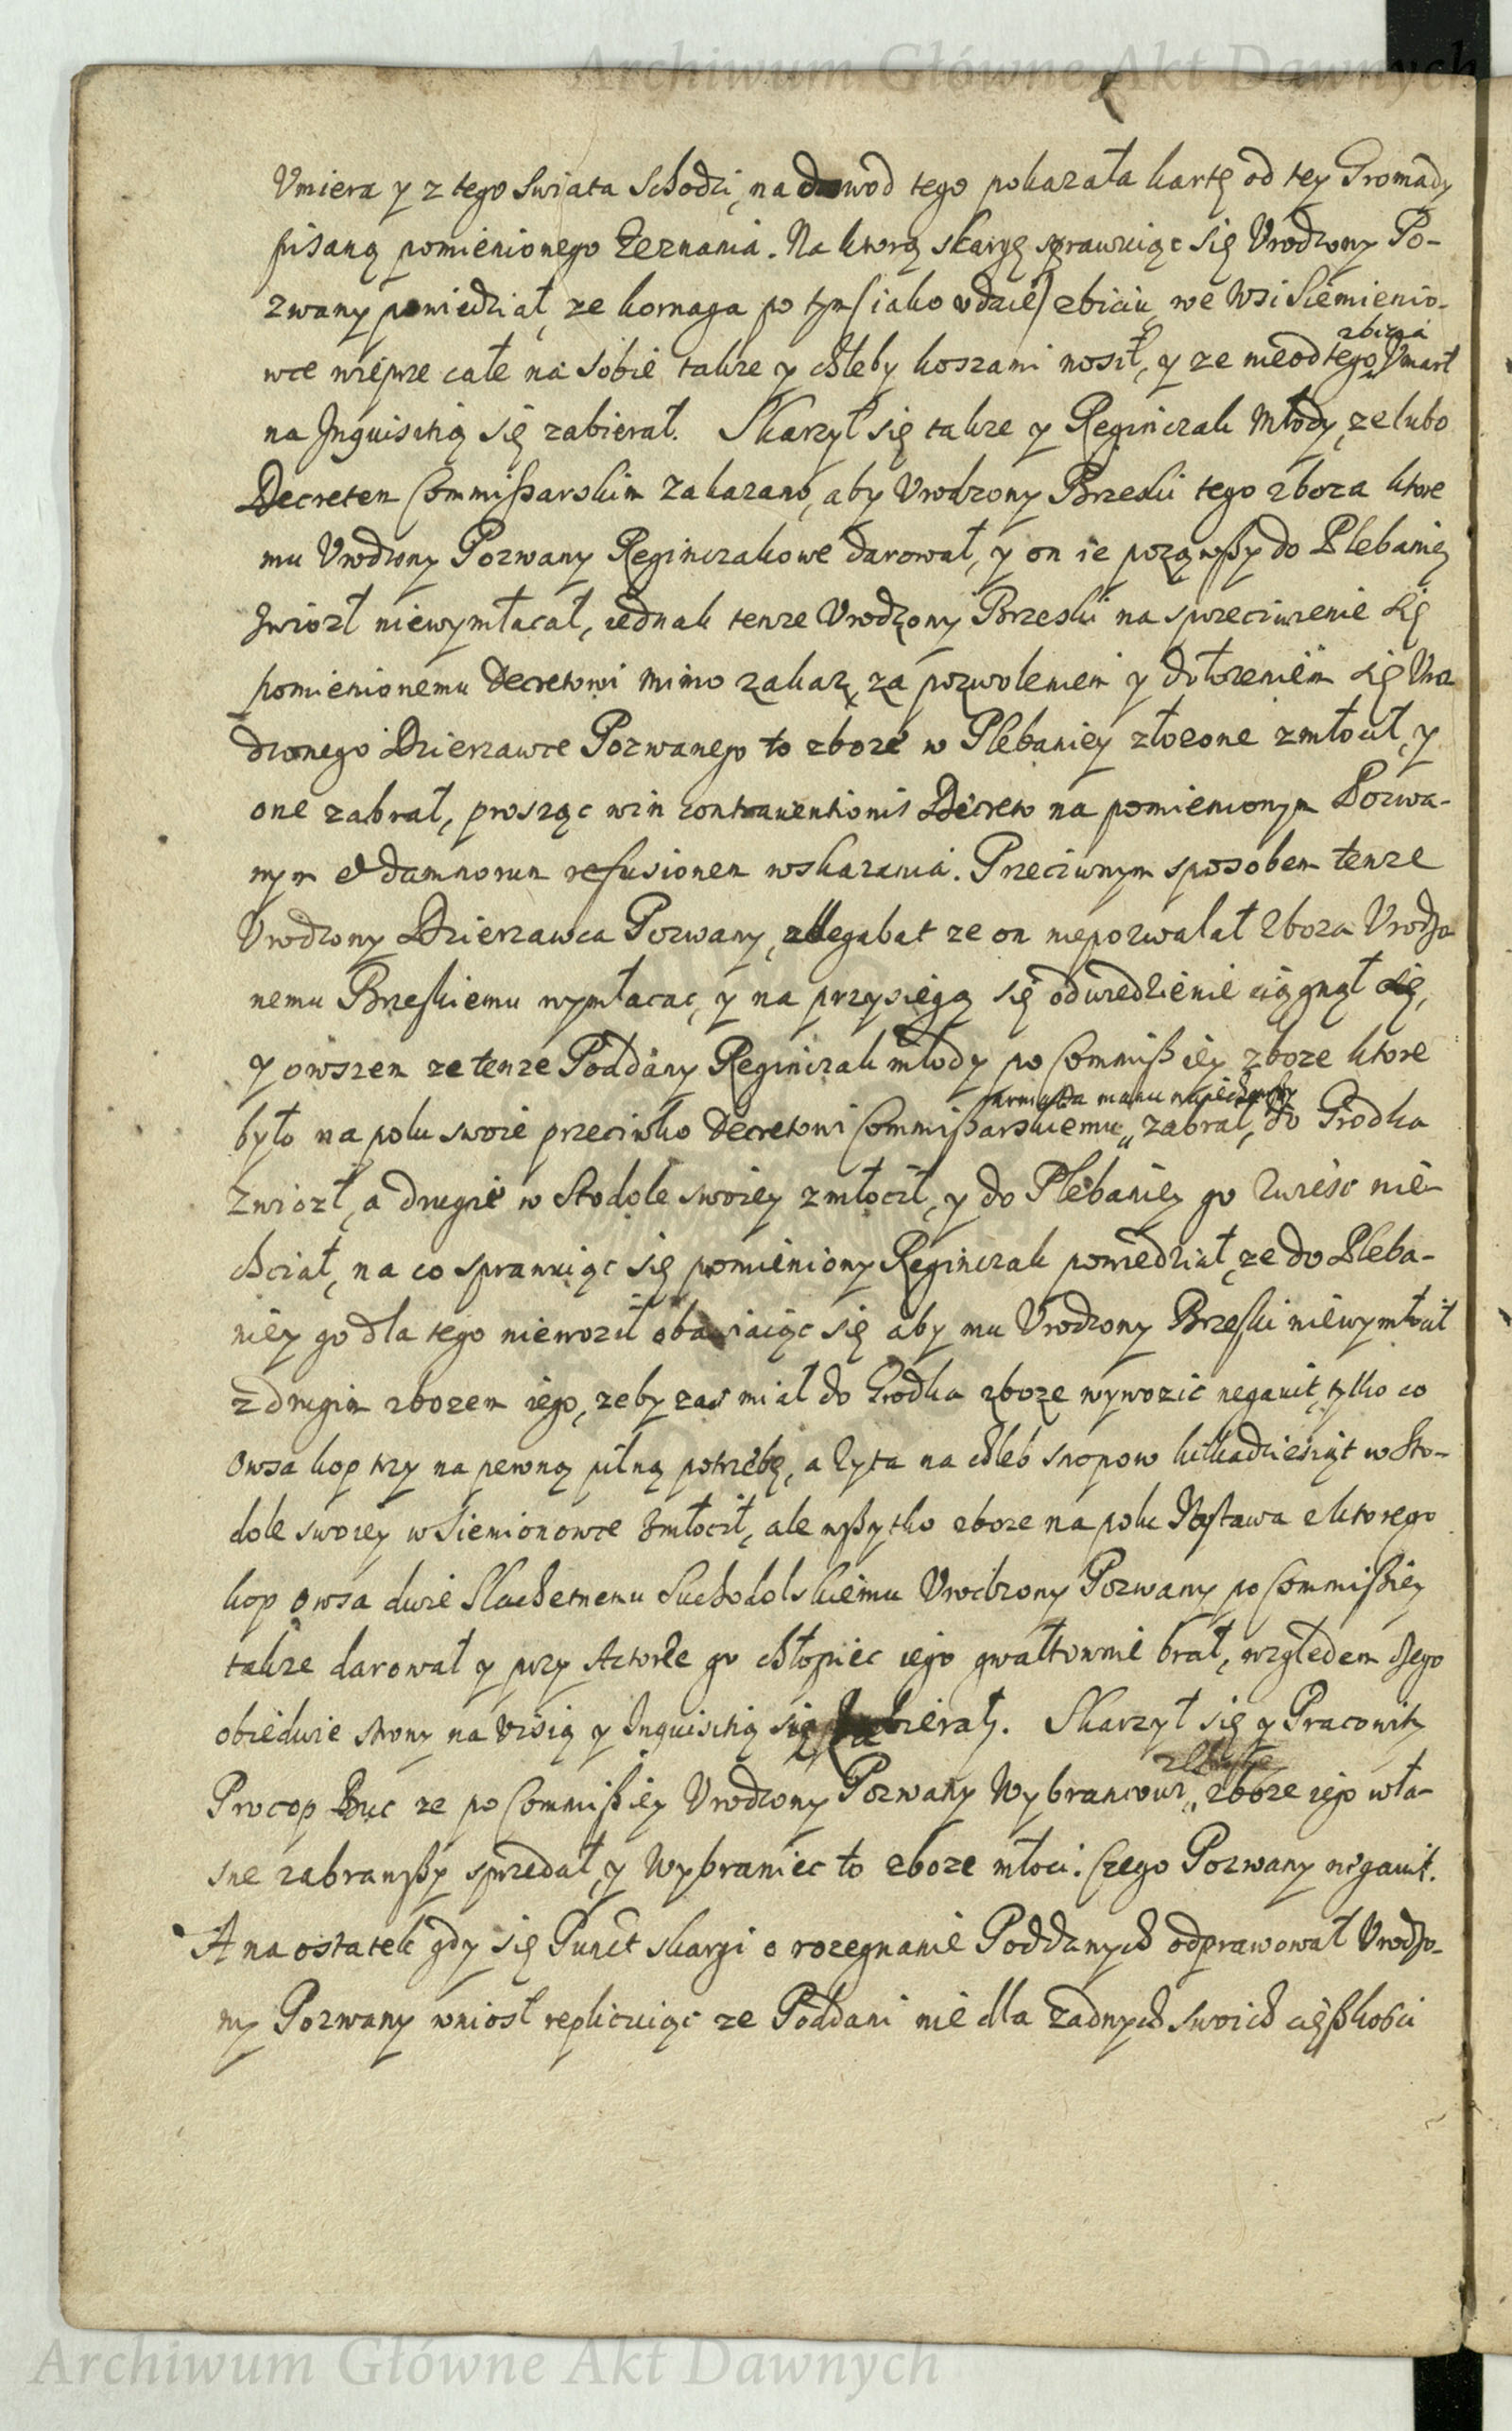 Archiwum Główne Akt Dawnych
Vmiera y z tego swiata schodzi, na dowod tego pokazała kartę od tey Gromady
pisaną pomienionego Zeznania. Na ktorą skargę sprawuiąc się Vrodzony Po-
zwany powiedział, ze kornaga po tym (iako vdaie) zbiciu we Wsi Siemienio-
zbicia
wce wieprze całe na sobie takze y chleby koszami nosił, y ze nie od tego „ Vmarł
na Jnquisitią się zabierał. Skarzył się takze y Reginczak Młody, ze lubo
Decretem Commissarskim Zakazano, aby Vrodzony Brzeski tego zboza ktore
mu Vrodzony Pozwany Reginczakowe darował, y on ie pozowszy do Plebaniey
Zwiozł niewymłacał, iednak tenze Vrodzony Brzeski na sprzeciwienie się
pomienionemu Decretowi mimo zakaz, za pozwoleniem y dołozeniem się Vro
dzonego Dzierzawce Pozwanego to zboze w Plebaniey złozone zmłocił, y
one zabrał, prosząc win contrauentionis Decreto na pomienionym Pozwa-
nym et damnorum refusionem wskazania. Przeciwnym sposobem tenze
Vrodzony Dzierzawca Pozwany, allegabat ze on niepozwalał zboza Vrodzo
nemu Brzeskiemu wymłacac, y na przysięgą się odwiedzienie ciągnął się,
y owszem ze tenze Poddany Reginczak młody po Commissiey zboze ktore
armata manu
było na polu swoie przeciwko Decretowi Commissarskiemu „ zabrał, do Grodka
Zwiozł, a drugie w Stodole swoiey zmłocił, y do Plebaniey go Zwiesc nie-
chciał, na co sprawuiąc się pomieniony Reginczak powiedział, ze do Pleba-
niey go dla tego niewoził obawiaiąc się aby mu Vrodzony Brzeski niewymłocił
z drugim zbozem iego, zeby zas miał do Grodka zboze wywozic negauit, tylko co
Owsa kop trzy na pewną pilną potrzebę, a Zyta na chleb snopow kilkadziesiąt w Sto-
dole swoiey w Siemionowce Zmłocił, ale wszytko zboze na polu Zostawa z ktorego
kop Owsa dwie Slachetnemu Suchodolskiemu Vrodzony Pozwany po Commissiey
takze darował y przy Actorze go chłopiec iego gwałtownie brał, względem czego
obiedwie strony na Visią y Jnquisitią się zabierały. Skarzył się y Pracowity
Procop Buc ze po Commissiey Vrodzony Pozwany Wybrancowi „ zboze iego wła-
sne zabrawszy sprzedał, y Wybraniec to zboze młoci. Czego Pozwany negauit.
A na ostatek gdy się Punct skargi o rozegnanie Poddanych odprawował Vrodzo-
ny Pozwany wniosł replicuiąc ze Poddani nie dla Zadnych swoich cięszkosci
Archiwum Główne Akt Dawnych